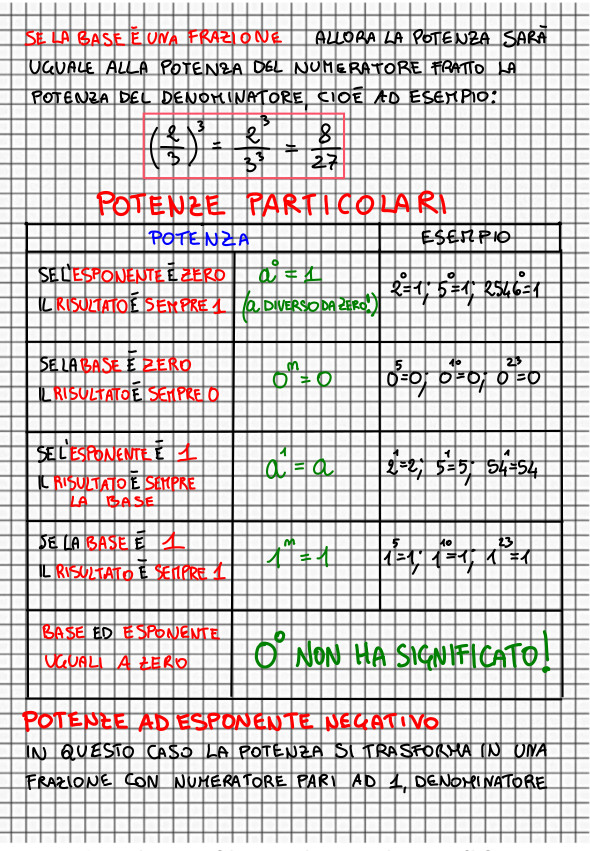 SE LA BASE È UNA FRAZIONE ALLORA LA POTENZA SARÀ
UGUALE ALLA POTENZA DEL NUMERATORE FRATTO LA
POTENZA DEL DENOMINATORE, CIOÈ AD ESEMPIO:
(2/3)³ = 2³/3³ = 8/27
POTENZE PARTICOLARI
POTENZA ESEMPIO
SE L'ESPONENTE È ZERO
IL RISULTATO È SEMPRE 1
a⁰ = 1
(a DIVERSO DA ZERO!)
2⁰=1; 5⁰=1; 2546⁰=1
SE LA BASE È ZERO
IL RISULTATO È SEMPRE 0
0ᵐ = 0
0⁵=0; 0¹⁰=0; 0²³=0
SE L'ESPONENTE È 1
IL RISULTATO È SEMPRE
LA BASE
a¹ = a
2¹=2; 5¹=5; 54¹=54
SE LA BASE È 1
IL RISULTATO È SEMPRE 1
1ᵐ = 1
1⁵=1; 1¹⁰=1; 1²³=1
BASE ED ESPONENTE
UGUALI A ZERO
0⁰ NON HA SIGNIFICATO!
POTENZE AD ESPONENTE NEGATIVO
IN QUESTO CASO LA POTENZA SI TRASFORMA IN UNA
FRAZIONE CON NUMERATORE PARI AD 1, DENOMINATORE